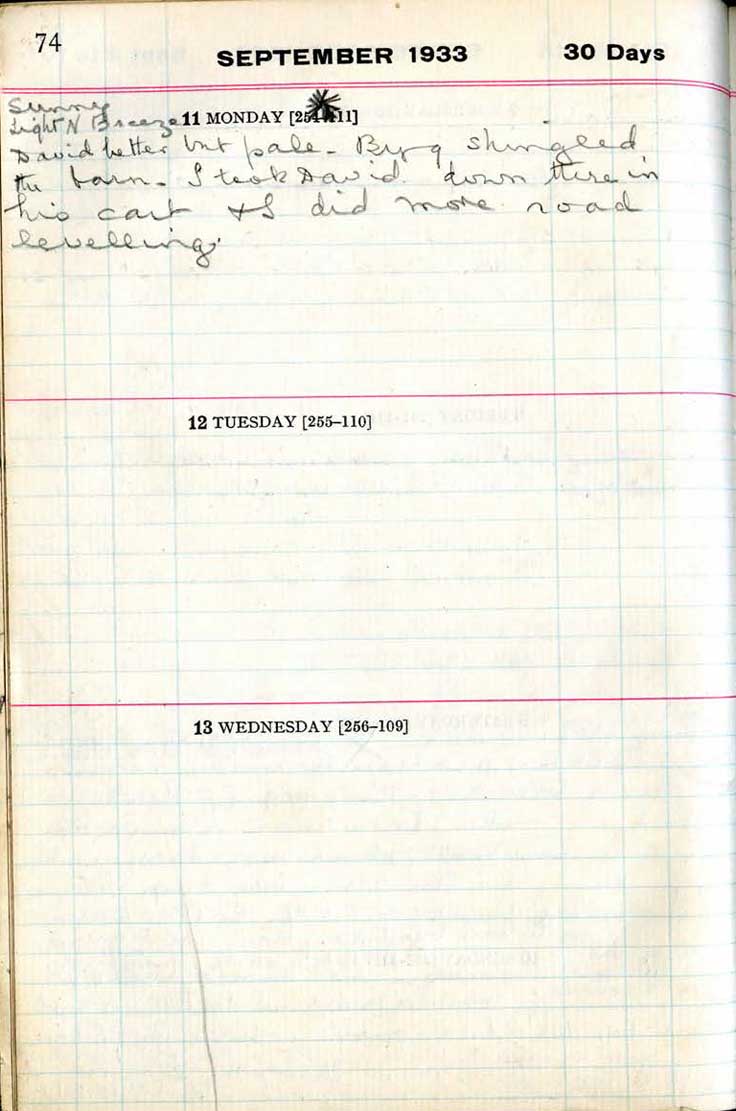 74
SEPTEMBER 1933 30 Days
Sunny
Light N Breeze 11 MONDAY [254-111]
David better but pale. Byrg shingled
the barn. I took David down there in
his cart & I did more road
levelling.
12 TUESDAY [255–110]
13 WEDNESDAY [256–109]